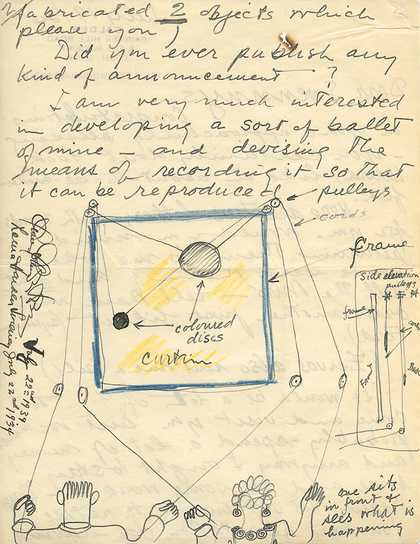 fabricated 2 objects which
please you,
Did you ever publish any
kind of announcement — ?
I am very much interested
in developing a sort of ballet
of mine — and devising the
means of recording it so that
it can be reproduced
pulleys
cords
frame
side elevation
pulleys
frame
Frame
coloured
discs
curtain
July 22nd 1934
one sits
in front &
sees what is
happening